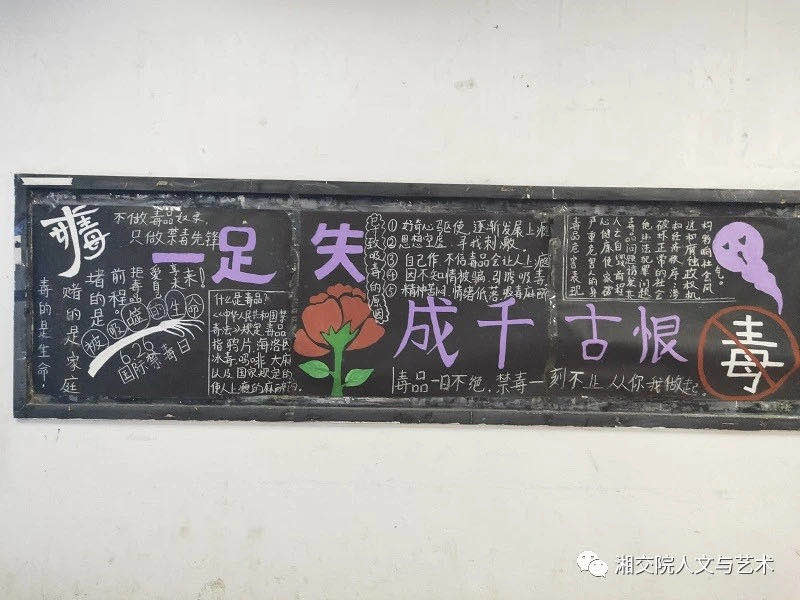 毒
不做毒品奴隶,
只做禁毒先锋
一足失
成千古恨
拒毒品
爱自
享未来!
前程。
堵的是
赌的是家庭
毒的是生命!
被吸噬的生命
6.26
国际禁毒日
什么是毒品?
《中华人民共和国禁
毒法》规定,毒品
指鸦片、海洛因
冰毒、吗啡、大麻
以及国家规定的
使人上瘾的麻醉药
导致吸毒的原因
① 好奇心驱使,逐渐发展上瘾
② 思想空虚,寻找刺激。
③ 自己作,不信毒品会让人上瘾
④ 因不知情被骗,引诱吸毒
⑤ 精神苦闷,情绪低落吸毒麻醉
毒品危害表现
严重危害人的身
心健康使家破
人亡自毁前程
毒品问题诱发其
他违法犯罪问题
破坏正常的社会
和经济秩序,污
毒
毒品一日不绝,禁毒一刻不止 从你我做起。
湘交院人文与艺术